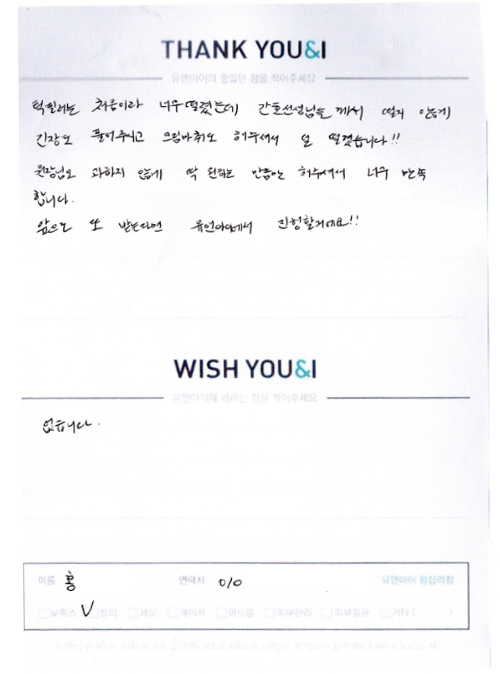 THANK YOU&I
유앤아이의 좋았던 점을 적어주세요
턱필러는 처음이라 너무 떨렸는데 간호선생님들께서 떨지 않게
긴장도 풀어주시고 크림마취도 해주셔서 덜 떨렸습니다!!
원장님도 과하지 않게 딱 원하는 만큼만 해주셔서 너무 만족
합니다.
앞으로 또 받는다면 유앤아이에서 진행할거에요!!
WISH YOU&I
유앤아이에 바라는 점을 적어주세요
없습니다.
이름 홍 연락처 010 유앤아이 왕십리점
보톡스 V 필러 제모 레이저 여드름 피부관리 피부질환 기타 ( )